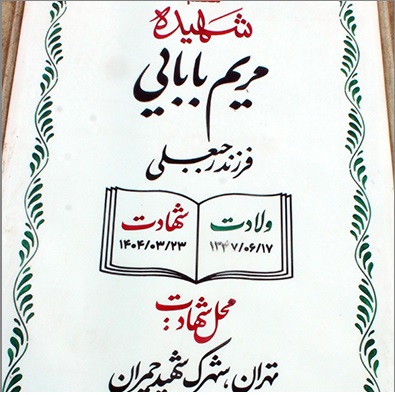 شهیده
مریم بابایی
فرزند رجبعلی
ولادت شهادت
۱۳۴۷/۰۶/۱۷ ۱۴۰۴/۰۳/۲۳
محل شهادت:
تهران، شهرک شهید چمران